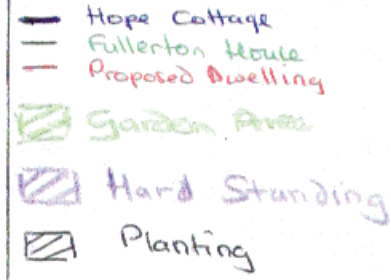 Hope Cottage
Fullerton House
Proposed Dwelling
Garden Area
Hard Standing
Planting